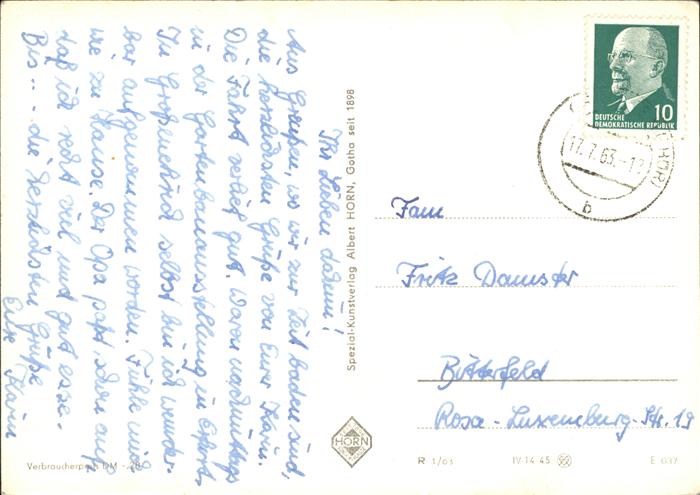 Ihr Lieben daheim!
Aus Greußen, wo wir zur Zeit baden sind,
die herzlichsten Grüße von Eurer Karin.
Die Fahrt verlief gut. Waren nachmittags
in der Gartenbauausstellung in Erfurt.
In Großmehlra selbst bin ich wunder-
bar aufgenommen worden. Fühle mich
wie zu Hause. Der Opa paßt schon auf,
daß ich recht viel und gut esse.
Bis... die herzlichsten Grüße
Eure Karin
Spezial-Kunstverlag Albert HORN, Gotha seit 1898
HORN
Verbraucherpreis DM -,20
10
DEUTSCHE
DEMOKRATISCHE REPUBLIK
17.7.63.-1
b
Fam
Fritz Damster
Bitterfeld
Rosa-Luxemburg-Str. 19
R 1/63 IV-14-45 E 037